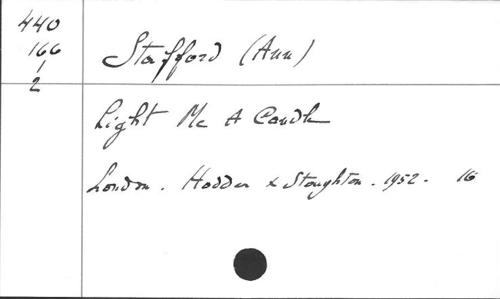 440
166
1
2
Stafford (Ann)
Light Me A Candle
London. Hodder & Stoughton. 1952. 16